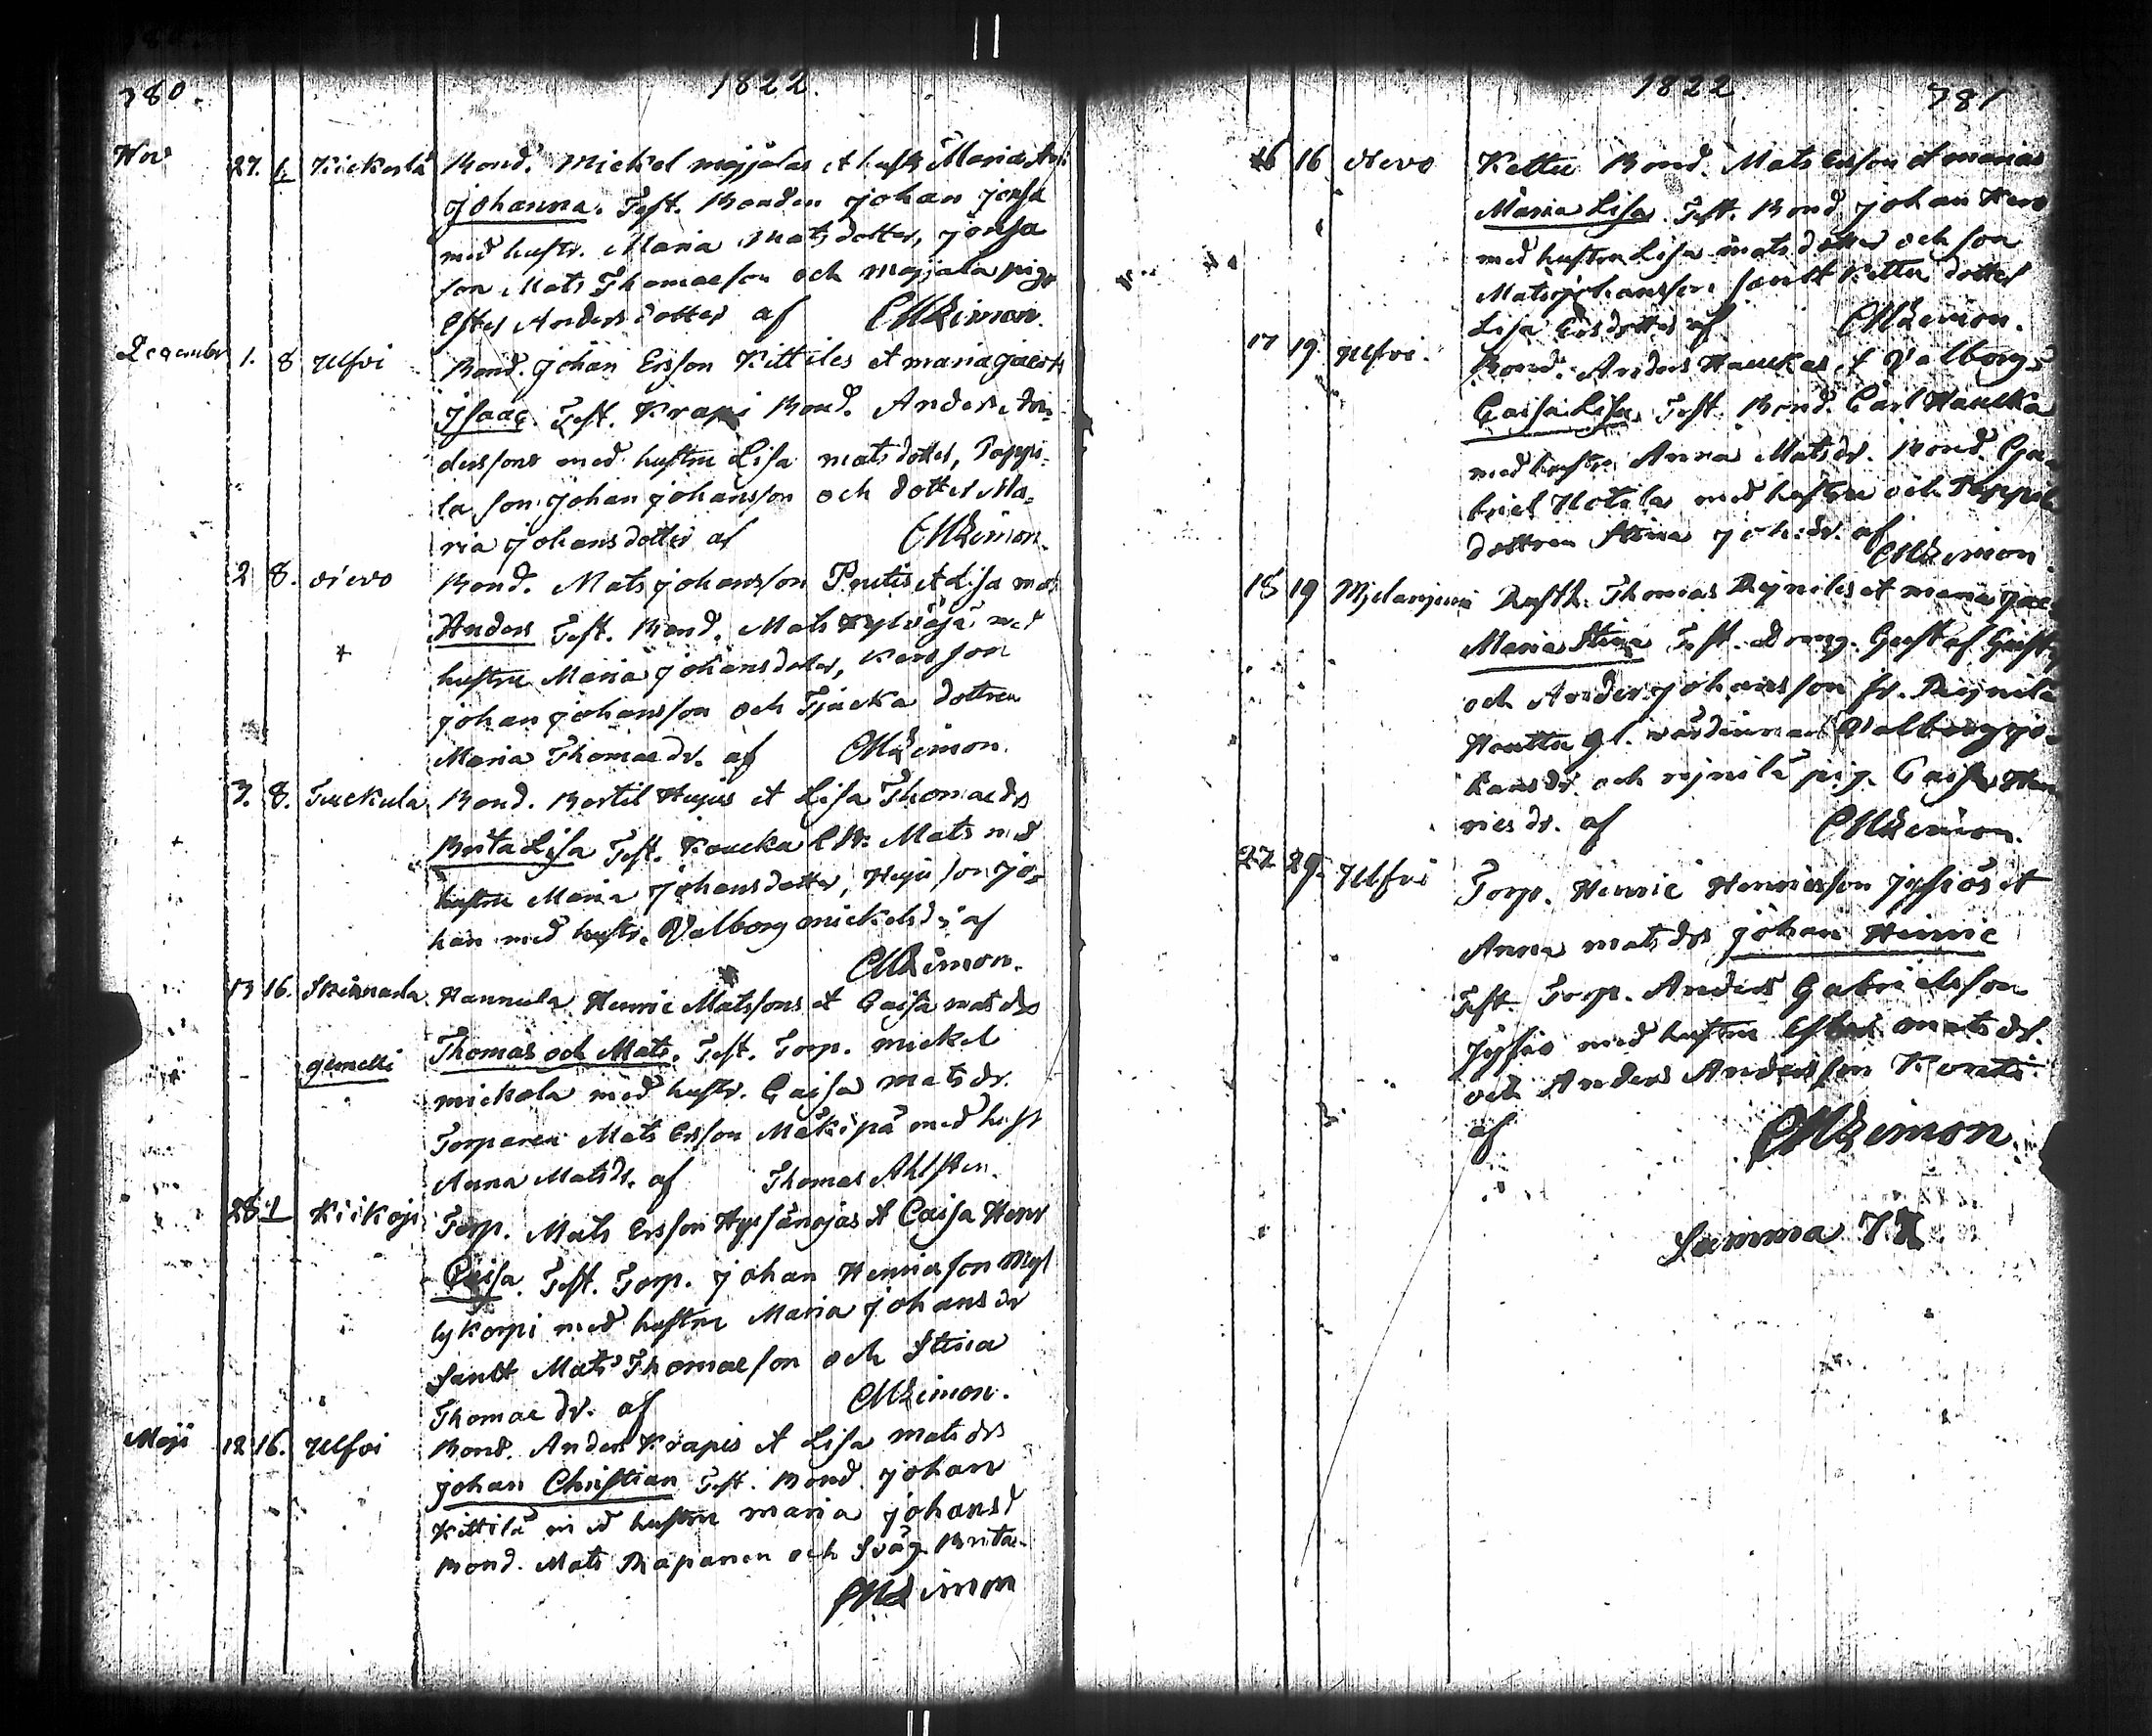 380. 1822.
Nov 27. 1. Kickerlä Bond. Mickel mojjalas et hustr Maria And
Johanna. Test. Bonden Johan Jonsa
med hustr. Maria Mats dotter, Jonsa
son Mats Thomaeson och Mojjala pig.
Ester Anders dotter af CMLimon.
December 1. 8 Ulfvi Bond. Johan Ersson Kittiles et maria Jacobs
Isaac. Test. Krapi Bond. Anders An-
dersson med hustru Lisa mats dotter, Pappi-
la son Johan Johansson och dotter Ma-
ria Johans dotter af CMLimon.
2 8. Sievo Bond. Mats Johansson Prutis et Lisa mats
Anders Test. Bond. Mats Kyläjä med
hustru Maria Johansdotter, Kers son
Johan Johansson och Tjacka dottren
Maria Thomae dr. af CMLimon.
3. 8. Tuckula Bond. Bertil Hujus et Lisa Thomae dr
Brita Lisa Test. Koucka Mats med
hustru Maria Johans dotter, Huju son Jo-
han med hustr. Valborg mickels dr af
CMLimon.
13 16. Skinnarla Hannula Henric Matssons et Caisa mats dr
gemelli Thomas och Mats. Test. Torp. mickel
mickola med hustr. Caisa mats dr.
Torparen Mats Ersson Mäkipä med hustr
Anna Mats dr. af Thomas Ahlsten.
28 1 Kiikois Torp. Mats Ersson et Caisa Henr
Caisa. Test. Torp. Johan Henricson Myl
lykorpi med hustru Maria Johans dr
samt Mats Thomaeson och Stina
Thomae dr. af CMLimon.
Maji 12 16. Ulfvi Bond. Anders Krapis et Lisa mats dr
Johan Christian Test. Bond. Johan
Kittilä med hustru maria Johansd
Bond. Mats Rapanen och Svåg. Brita
CMLimon
1822 381
16 16 Sievo Kettu Bond. Mats Ersson et marias
Maria Lisa. Test. Bond Johan Kers
med hustru Lisa mats dotter och son
Mats Johansson samt Kettu dotter
Lisa Ersdotter af CMLimon.
17 19 Ulfvi. Bond. Anders Hauckas et Valborg
Caisa Lisa Test. Bond. Carl Haucka
med hustru Anna Mats dr. Bond. Ga-
briel Hotila med hustru och Pappila
dottren Stina Joh: dr. af CMLimon
18 19 Rusth. Thomas Rejniles et maria Jac
Maria Stina Test. Dreng. Gustaf Gust
och Anders Johansson fr. Rejnilä
Houttu gl. värdinnan Valborg Jo-
hans dr. och rejnilä pig. Caisa Hen
rics dr. af CMLimon.
22 29. Ulfvi Torp. Henric Henricsson Jyssös et
Anna mats dr Johan Henric
Test. Torp. Anders Gabrielsson
Jyssö med hustru Ester mats dr.
och Anders Andersson Konti
af CMLimon
Summa 7